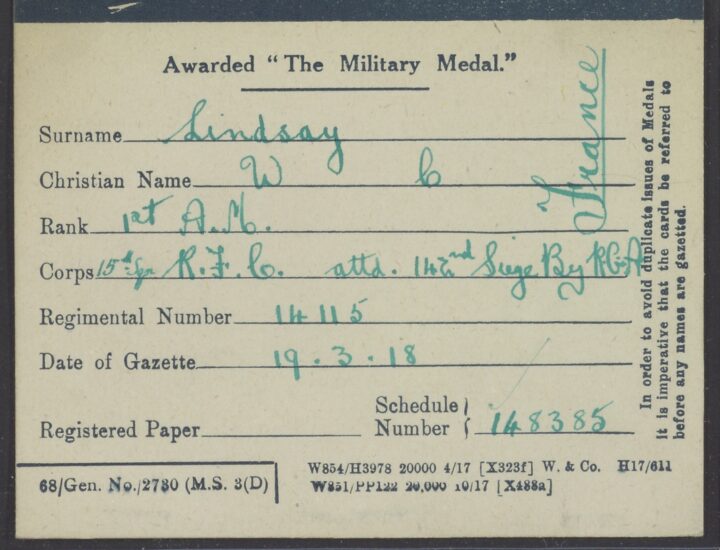 Awarded “The Military Medal.”
France
Surname Lindsay
Christian Name W C
Rank 1st A.M.
Corps 15th Sqn R.F.C. attd. 142nd Siege By R.G.A
Regimental Number 14115
Date of Gazette 19.3.18
Registered Paper
Schedule Number 148385
68/Gen. No./2730 (M.S. 3(D)
W854/H3978 20000 4/17 [X323f] W. & Co. H17/611
W851/PP122 20,000 10/17 [X488a]
In order to avoid duplicate issues of Medals
it is imperative that the cards be referred to
before any names are gazetted.